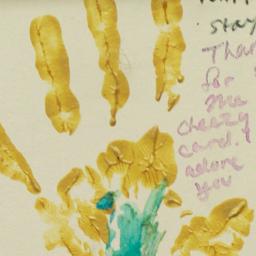 stay
Than
for
the
cheezy
card. I
adore
you